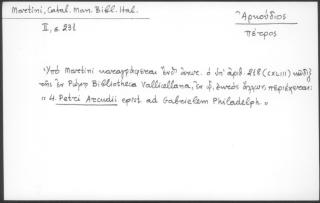 Martini, Catal. Man. Bibl. Ital.
II, σ 231
Ἀρκούδιος
πέτρος
Ὑπὸ Martini καταγράφεται ὁ ὑπ' ἀριθ. 218 (CXLIII) κῶδιξ
τῆς ἐν Ρώμῃ Bibliotheca Vallicellana, ἐν ᾧ, ἐκτὸς ἄλλων, περιέχεται:
" 4. Petri Arcudii epist. ad Gabrielem Philadelph. "